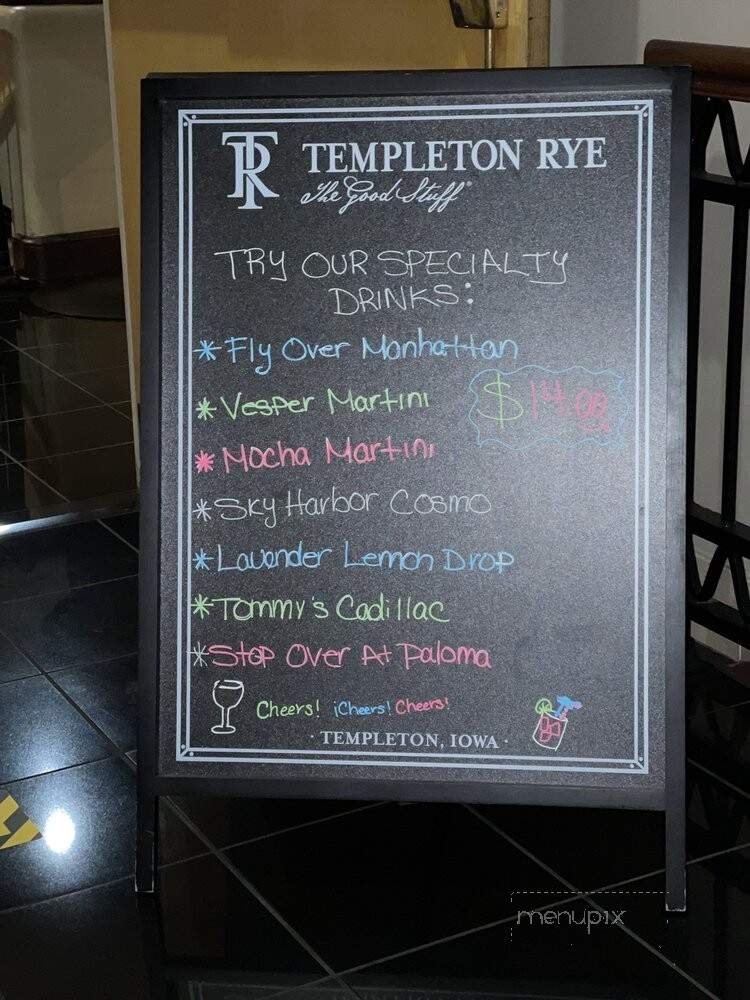 TR TEMPLETON RYE
The Good Stuff®
TRY OUR SPECIALTY
DRINKS:
* Fly Over Manhattan
* Vesper Martini
$14.00
* Mocha Martini
* Sky Harbor Cosmo
* Lavander Lemon Drop
* Tommy's Cadillac
* Stop Over At Paloma
Cheers! ¡Cheers! Cheers!
· TEMPLETON, IOWA ·
menupix